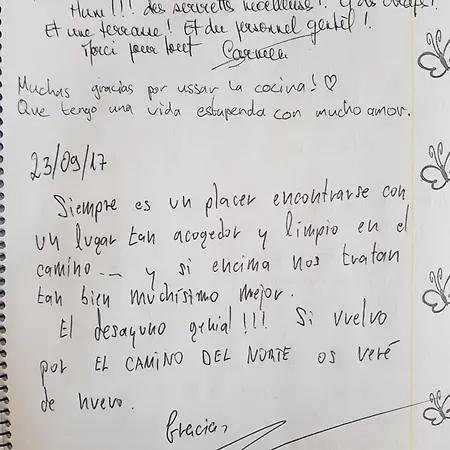 Hum!!! des serviettes moelleuse!
Et une terrasse! Et du personnel gentil!
Merci pour tout Carmen
Muchas gracias por ussar la cocina! ♡
Que tengo una vida estapenda con mucho amor.
23/09/17
Siempre es un placer encontrarse con
un lugar tan acogedor y limpio en el
camino... y si encima nos tratan
tan bien muchísimo mejor.
El desayuno genial!!! Si vuelvo
por EL CAMINO DEL NORTE os veré
de nuevo.
Gracias